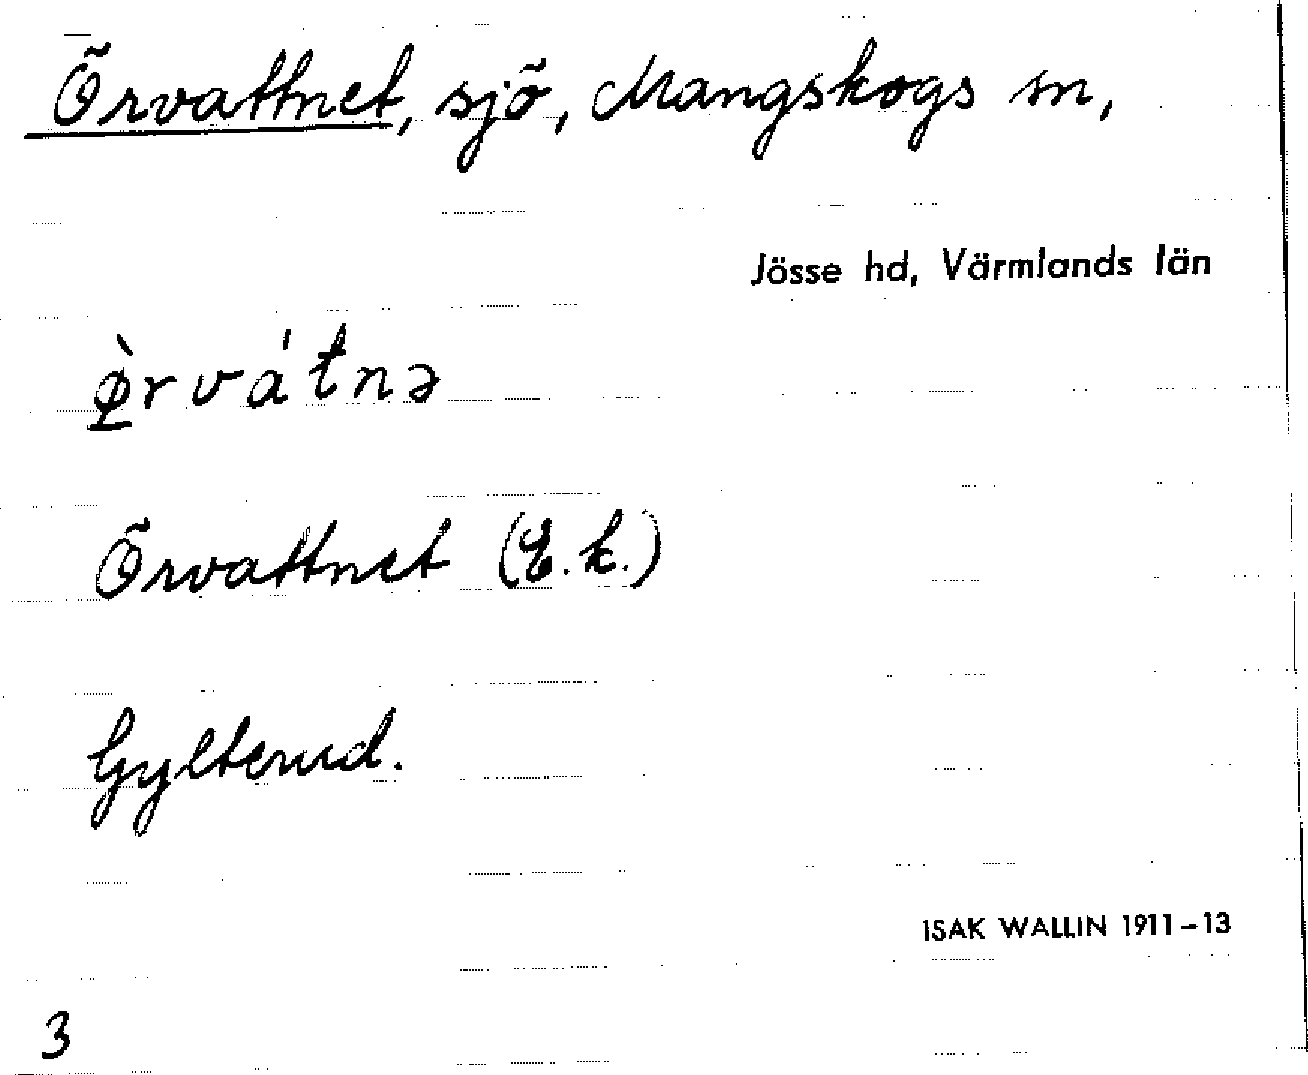 Örvattnet, sjö, Mangskogs sn,
Jösse hd, Värmlands län
ø̱̀rvátnə
Örvattnet (E.k.)
Gylterud.
ISAK WALLIN 1911-13
3